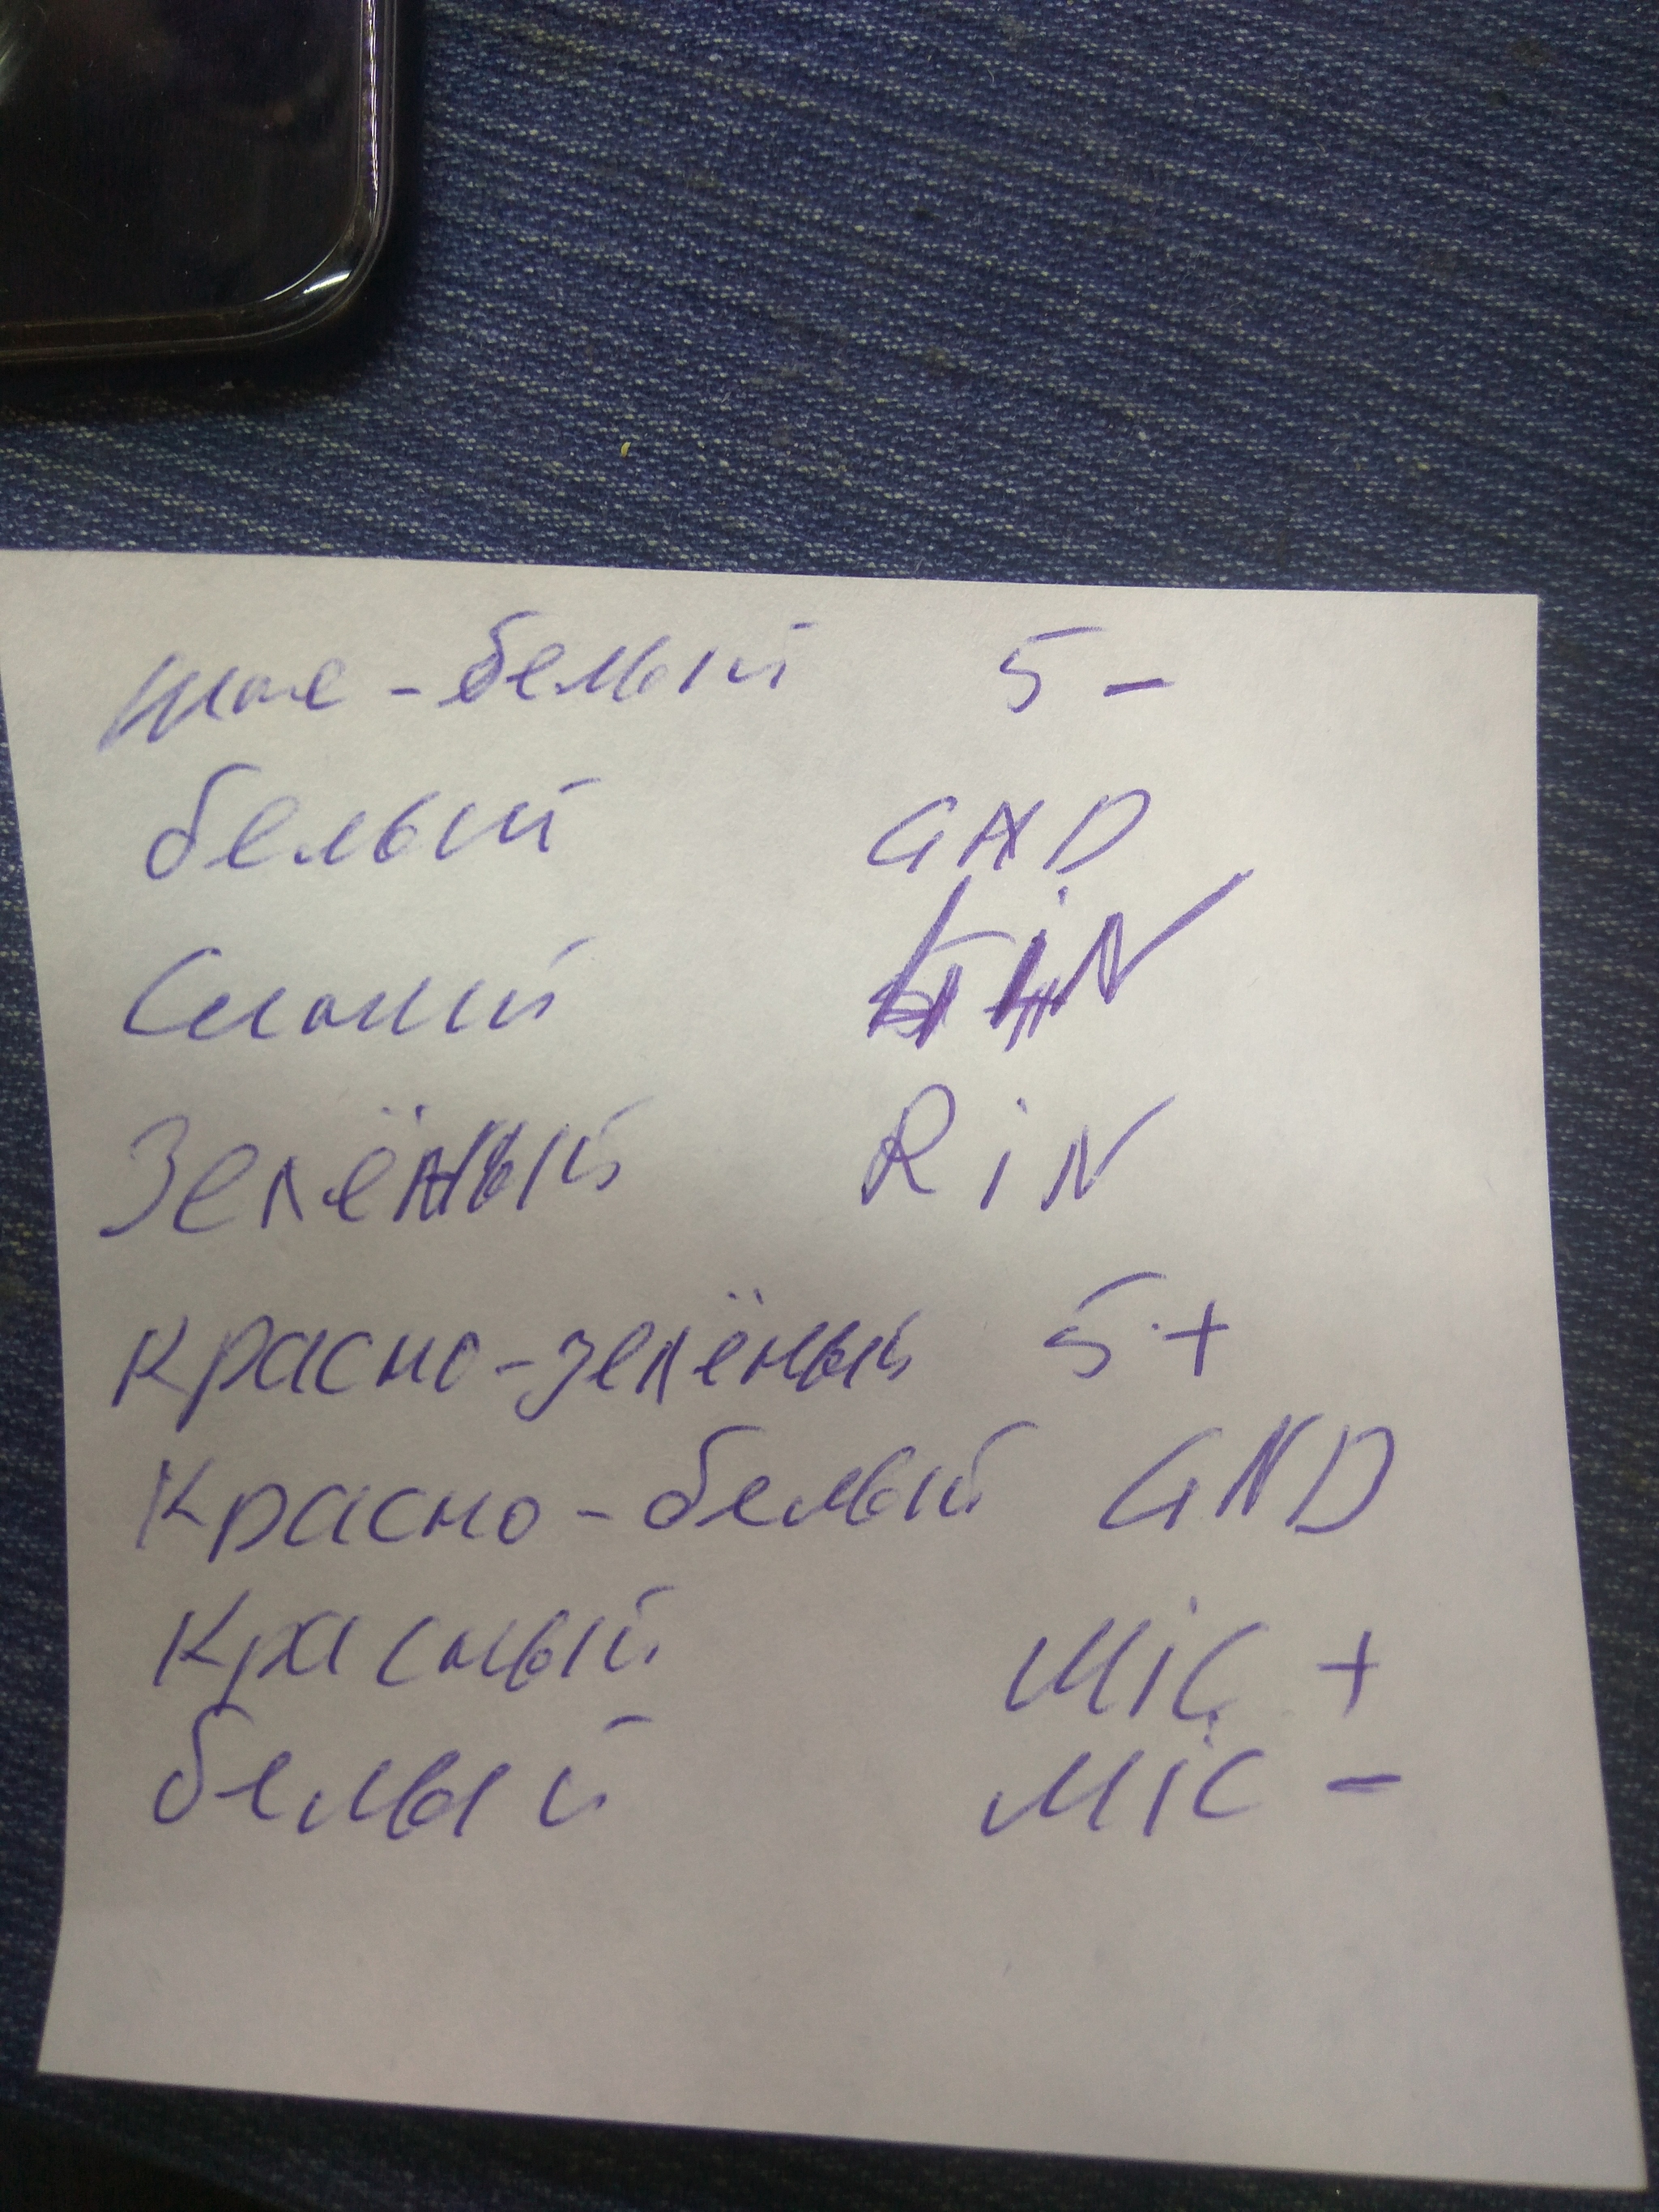 -белый 5 -
белый GND
Синий iN
Зелёный RiN
красно-зелёный 5 +
красно-белый GND
красный MiC +
белый MiC -